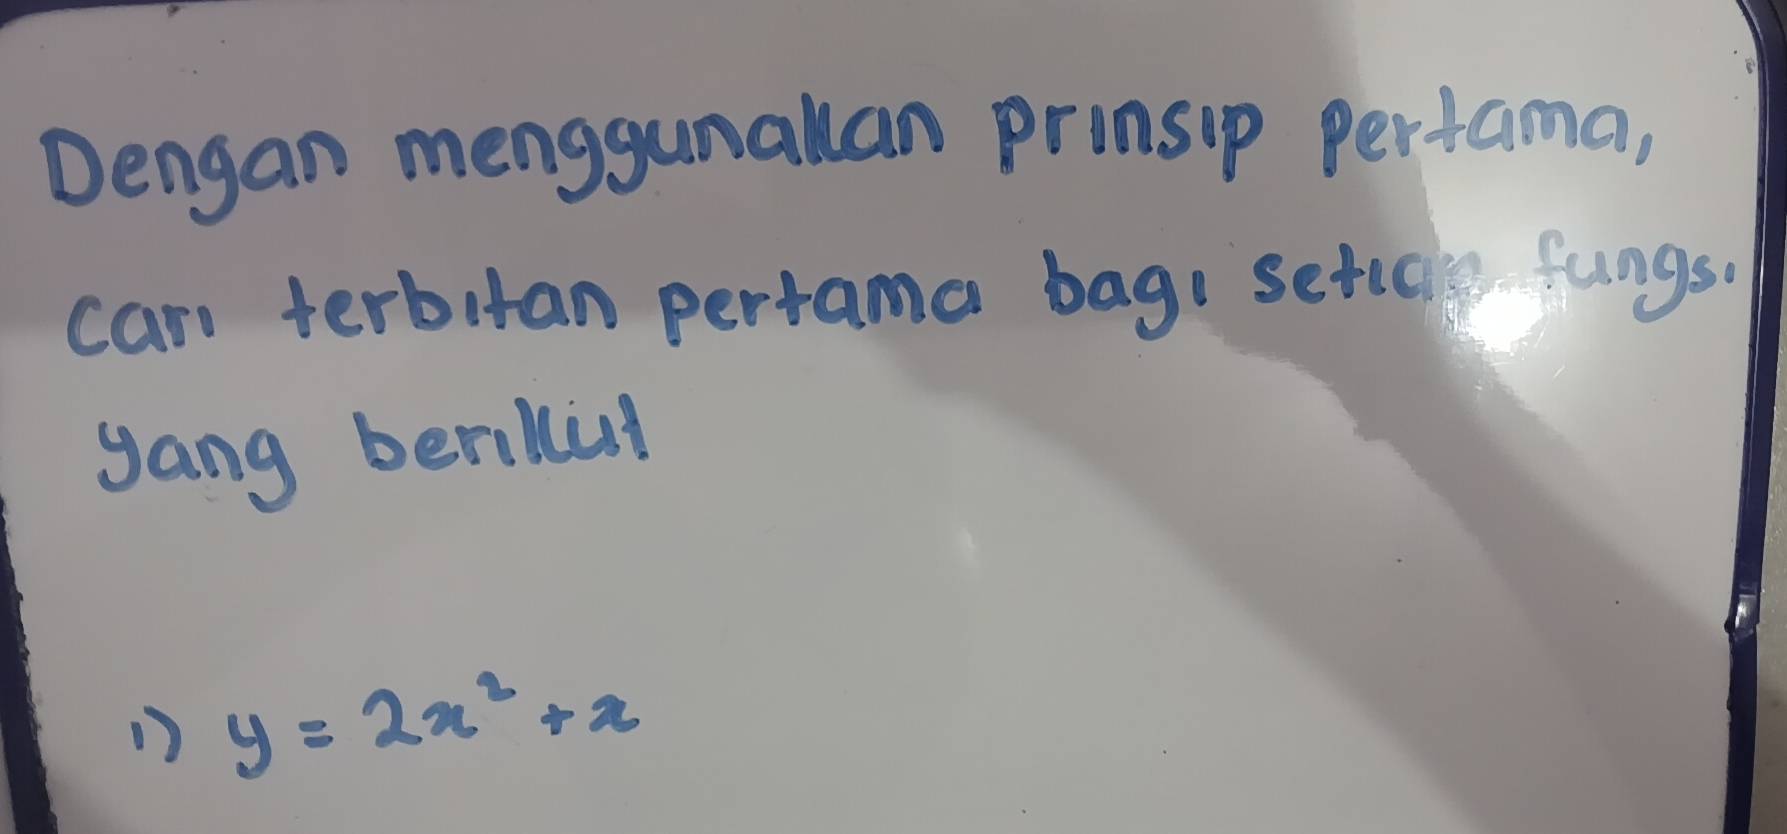 Dengan menggunakan prinsip pertama,
cari terbitan pertama bagi setiap fungsi
yang berikut
1) y = 2x² + x